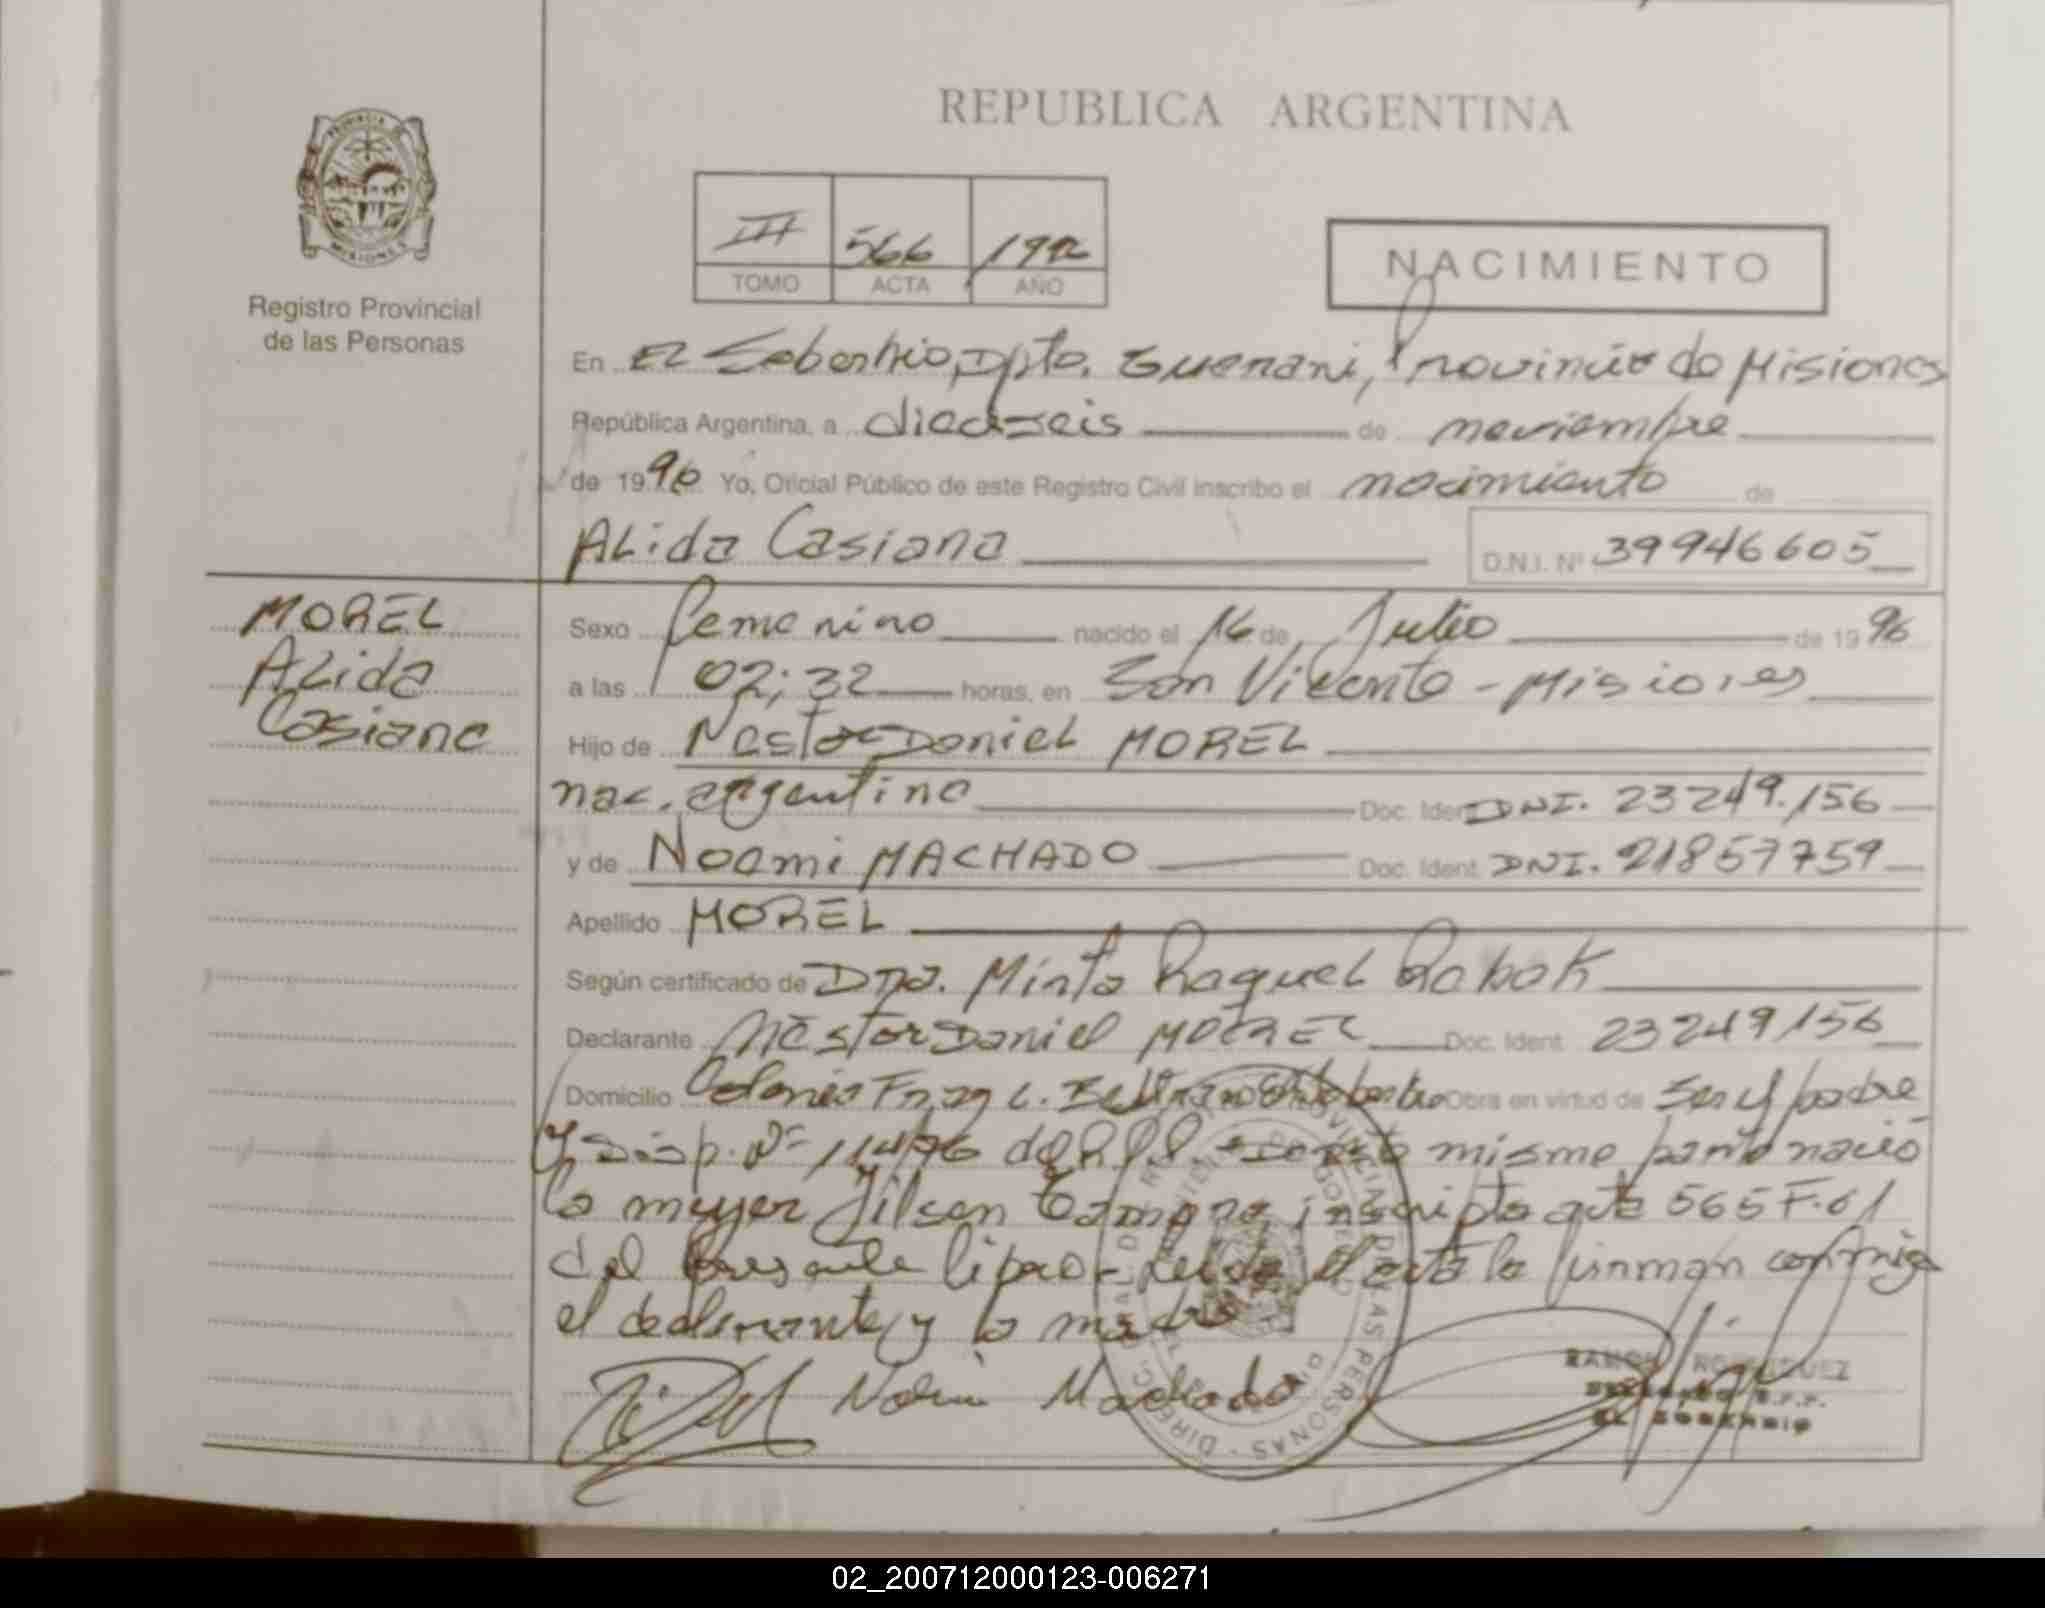 REPUBLICA ARGENTINA
PROVINCIA DE
MISIONES
Registro Provincial
de las Personas
III 566 1996
TOMO ACTA AÑO
NACIMIENTO
En El Soberbio, Dpto. Guarani, Provincia de Misiones
República Argentina, a dieciseis de noviembre
de 1996 Yo, Oficial Público de este Registro Civil inscribo el nacimiento de
Alida Casiana D.N.I. Nº 39946605
MOREL
Alida
Casiana
Sexo femenino nacido el 16 de Julio de 1996
a las 02:32 horas, en San Vicente - Misiones
Hijo de Nestor Daniel MOREL
nac. argentino Doc. Ident. DNI. 23249.156
y de Noemi MACHADO Doc. Ident. DNI. 21857759
Apellido MOREL
Según certificado de Dra. Mirta Raquel
Declarante Nestor Daniel MOREL Doc. Ident. 23249156
Domicilio Colonia Fray L. Beltran El Soberbio Obra en virtud de ser el padre
y Disp. Nº del R.P.P. - De este mismo parto nació
la mujer Tamara, inscripta acta 565 F. 61
del presente libro - Leida el acta la firman conmigo
el declarante y la madre
Noemi Machado
RAMON RODRIGUEZ
DELEGADO R.P.P.
EL SOBERBIO
02_200712000123-006271